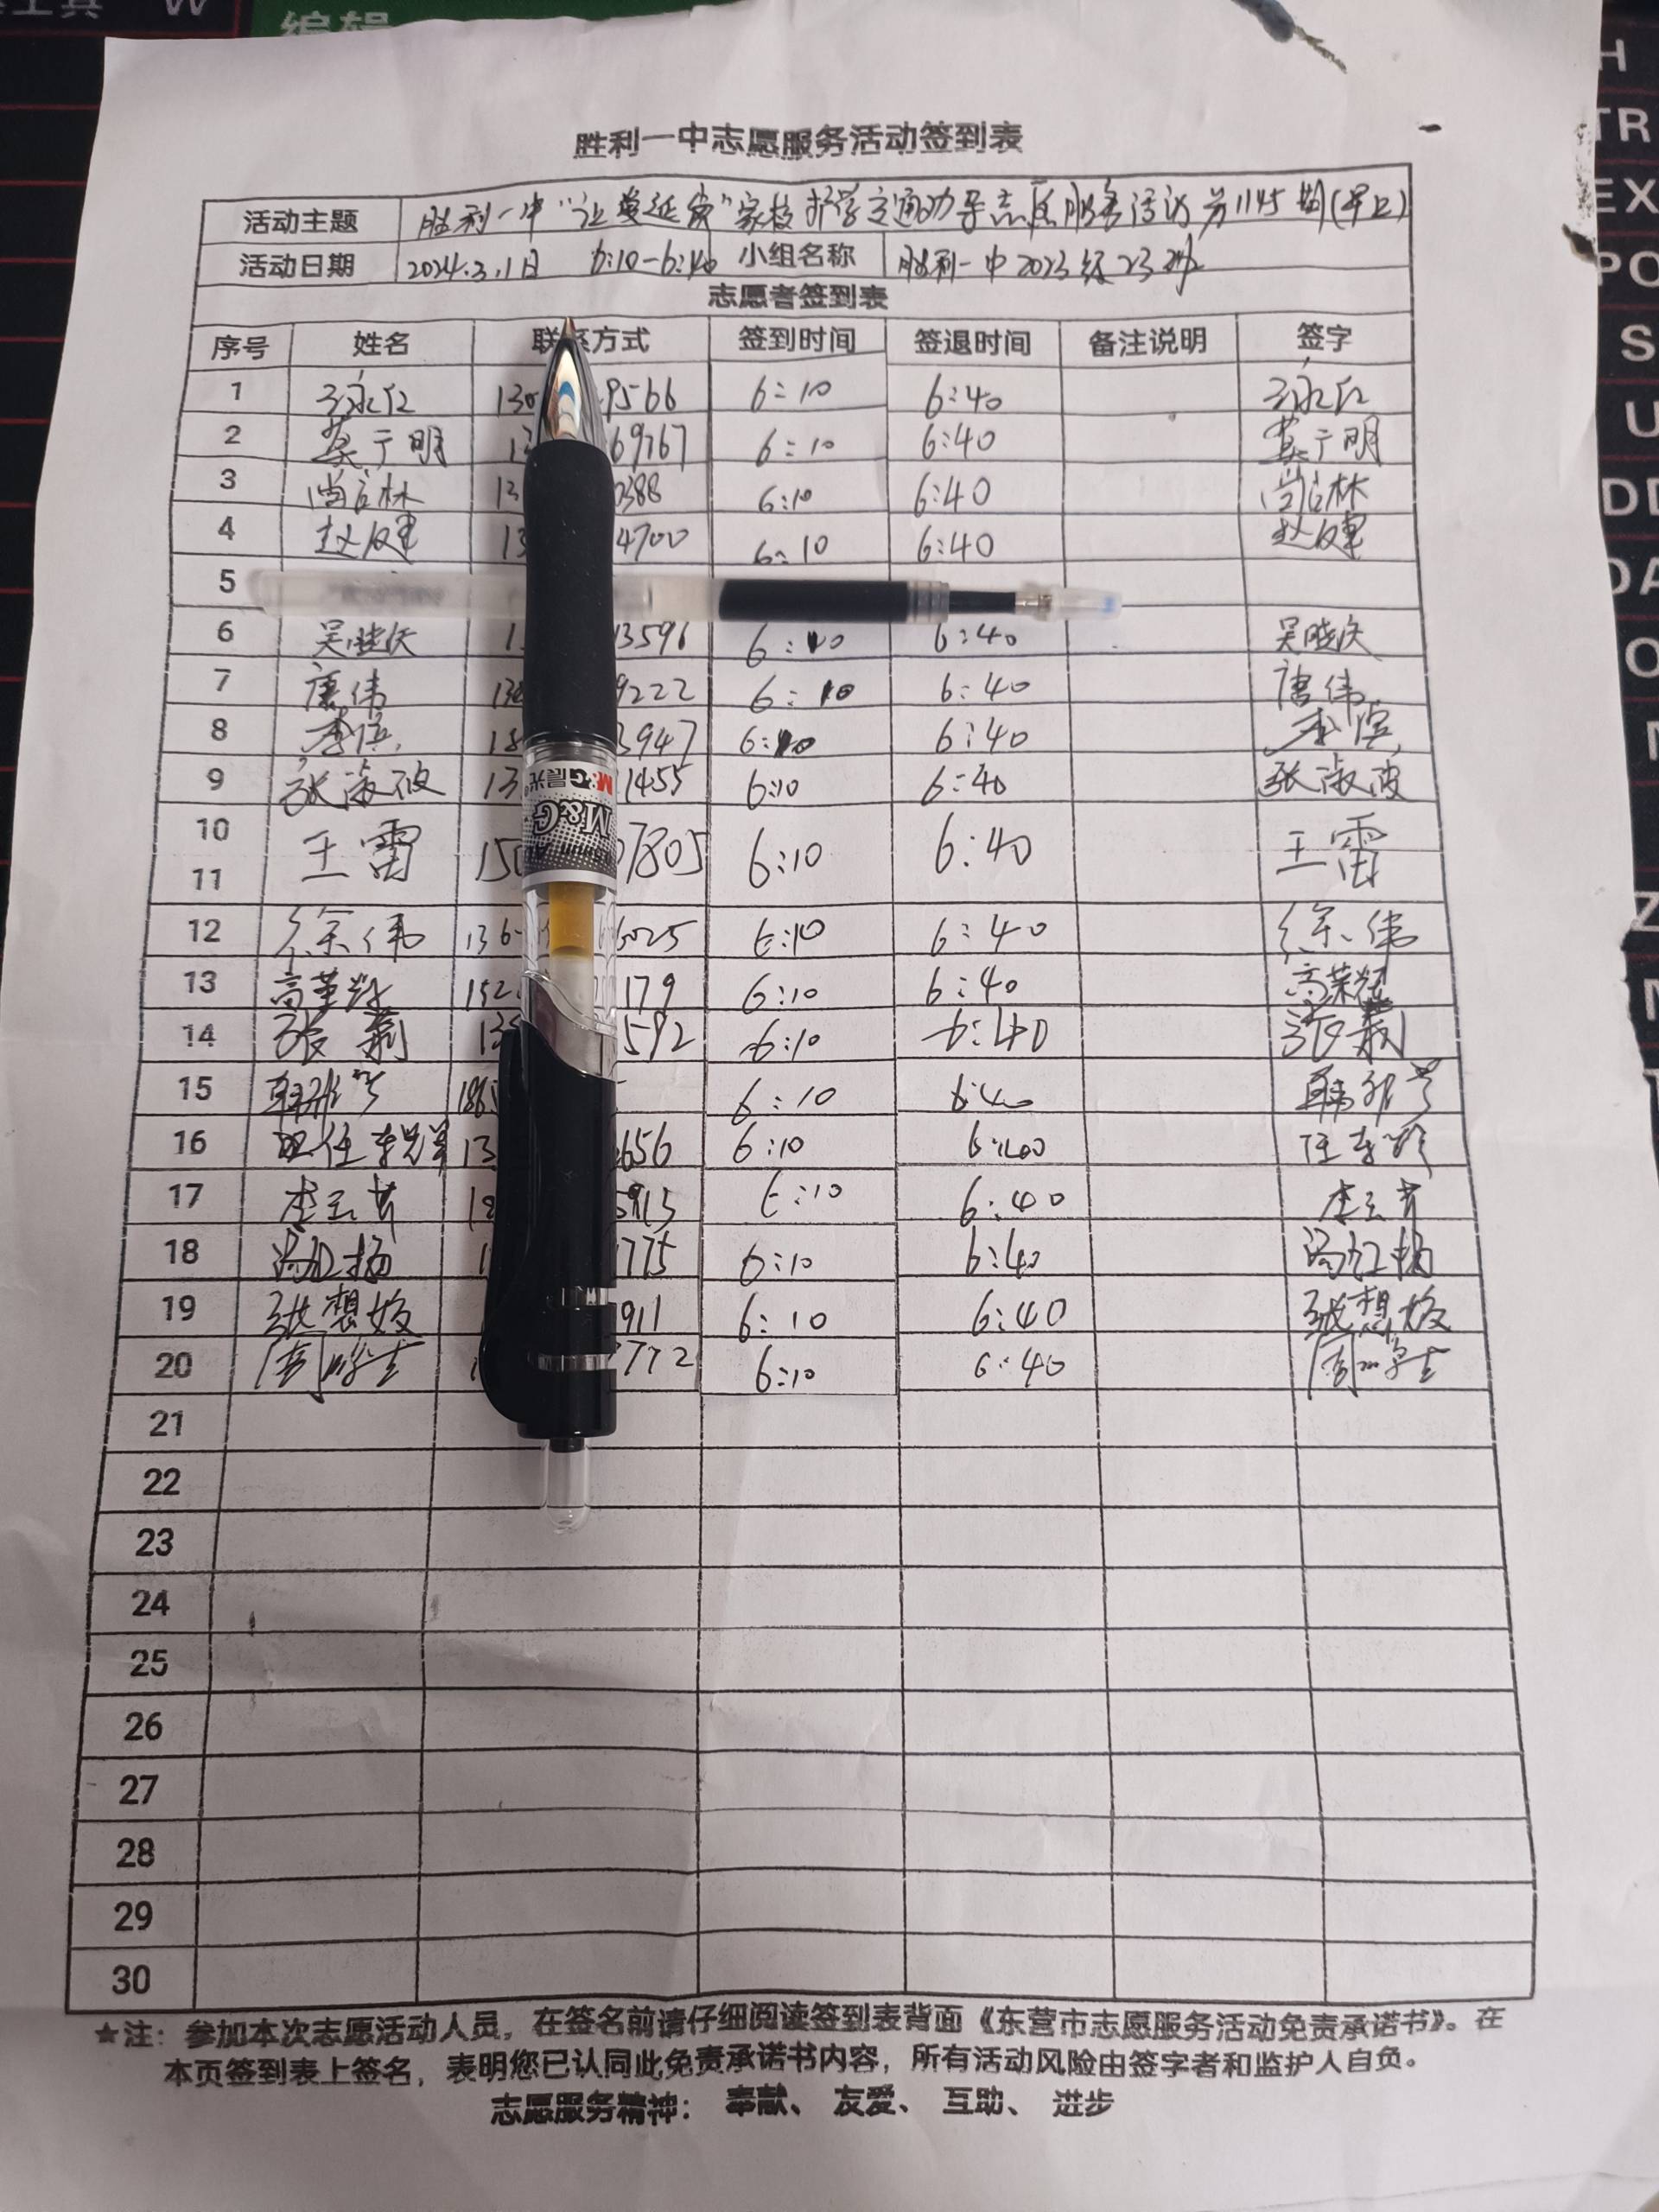 编辑
胜利一中志愿服务活动签到表
活动主题 胜利一中"让爱延家校护学交通劝导志愿服务活动第1145期(早上)
活动日期 2024.3.1日 6:10-6:40 小组名称 胜利一中2023级23班
志愿者签到表
序号 姓名 联系方式 签到时间 签退时间 备注说明 签字
1 130 9566 6:10 6:40
2 莫广明 13 69767 6:10 6:40 莫广明
3 尚官林 13 0388 6:10 6:40 尚官林
4 13 4700 6:10 6:40
5
6 吴晓庆 1 13596 6:10 6:40 吴晓庆
7 唐伟 138 9222 6:10 6:40 唐伟
8 李滨 18 3947 6:10 6:40 李滨
9 张淑波 13 1455 6:10 6:40 张淑波
10 王雷 150 07805 6:10 6:40 王雷
11
12 徐伟 136 6025 6:10 6:40 徐伟
13 152 179 6:10 6:40 高荣辉
14 张莉 13 592 6:10 6:40 张莉
15 1865 6:10 6:40
16 13 656 6:10 6:40
17 李云芳 18 5913 6:10 6:40 李云芳
18 冯红梅 1 775 6:10 6:40 冯红梅
19 张想姣 911 6:10 6:40 张想姣
20 772 6:10 6:40
21
22
23
24
25
26
27
28
29
30
★注：参加本次志愿活动人员，在签名前请仔细阅读签到表背面《东营市志愿服务活动免责承诺书》。在
本页签到表上签名，表明您已认同此免责承诺书内容，所有活动风险由签字者和监护人自负。
志愿服务精神：奉献、友爱、互助、进步
M&G晨光
M&G